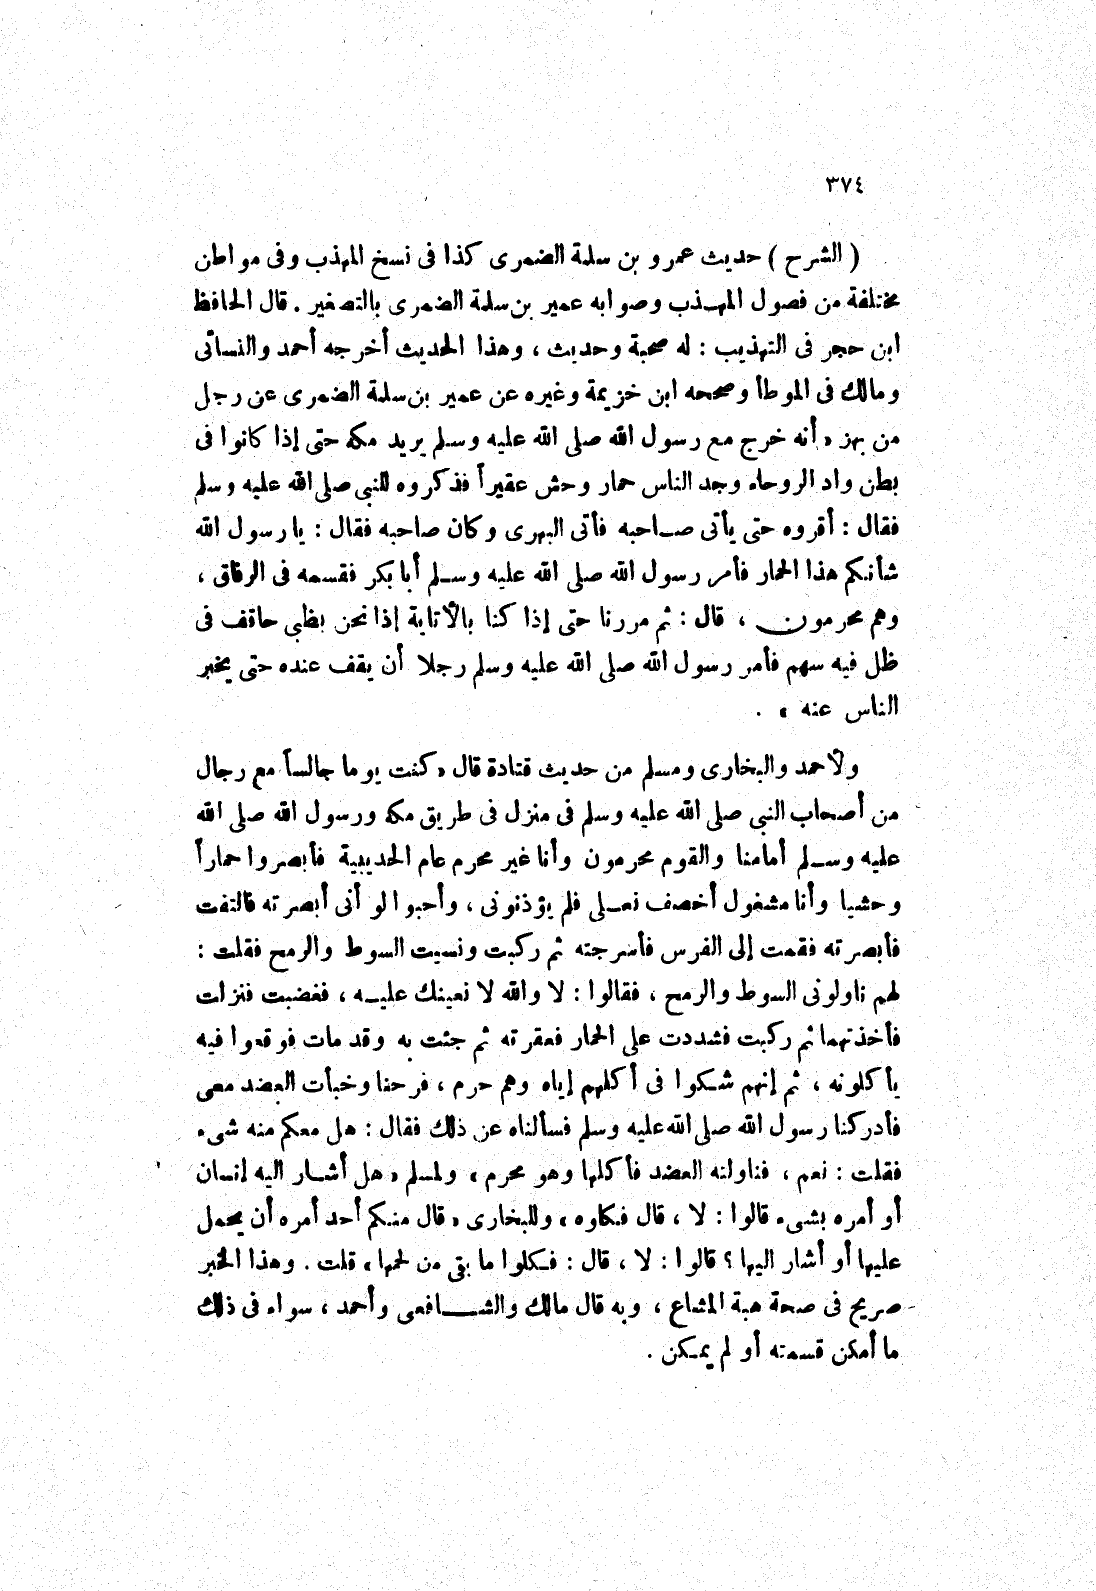 ٣٧٤
( الشرح ) حديث عمرو بن سلمة الضمرى كذا فى نسخ المهذب وفى مواطن
مختلفة من فصول المهذب وصوابه عمير بن سلمة الضمرى بالتصغير . قال الحافظ
ابن حجر فى التهذيب : له صحبة وحديث ، وهذا الحديث أخرجه أحمد والنسائى
ومالك فى الموطأ وصححه ابن خزيمة وغيره عن عمير بن سلمة الضمرى عن رجل
من بهز « أنه خرج مع رسول الله صلى الله عليه وسلم يريد مكة حتى إذا كانوا فى
بطن واد الروحاء وجد الناس حمار وحش عقيراً فذكروه للنبى صلى الله عليه وسلم
فقال : أقروه حتى يأتى صاحبه فأتى البهرى وكان صاحبه فقال : يا رسول الله
شأنكم هذا الحمار فأمر رسول الله صلى الله عليه وسلم أبا بكر فقسمه فى الرفاق ،
وهم محرمون ، قال : ثم مررنا حتى إذا كنا بالأثاية إذا نحن بظبى حاقف فى
ظل فيه سهم فأمر رسول الله صلى الله عليه وسلم رجلا أن يقف عنده حتى يخبر
الناس عنه » .
ولأحمد والبخارى ومسلم من حديث قتادة قال « كنت يوما جالساً مع رجال
من أصحاب النبى صلى الله عليه وسلم فى منزل فى طريق مكة ورسول الله صلى الله
عليه وسلم أمامنا والقوم محرمون وأنا غير محرم عام الحديبية فأبصروا حماراً
وحشيا وأنا مشغول أخصف نعلى فلم يؤذنونى ، وأحبوا لو أنى أبصرته فالتفت
فأبصرته فقمت إلى الفرس فأسرجته ثم ركبت ونسيت السوط والرمح فقلت :
لهم ناولونى السوط والرمح ، فقالوا : لا والله لا نعينك عليه ، فغضبت فنزلت
فأخذتهما ثم ركبت فشددت على الحمار فعقرته ثم جئت به وقد مات فوقعوا فيه
يأكلونه ، ثم إنهم شكوا فى أكلهم إياه وهم حرم ، فرحنا وخبأت العضد معى
فأدركنا رسول الله صلى الله عليه وسلم فسألناه عن ذلك فقال : هل معكم منه شىء
فقلت : نعم ، فناولته العضد فأكلها وهو محرم » ولمسلم « هل أشار اليه إنسان
أو أمره بشىء قالوا : لا ، قال فكلوه » وللبخارى « قال منكم أحد أمره أن يحمل
عليها أو أشار اليها ؟ قالوا : لا ، قال : فكلوا ما بقى من لحمها » قلت . وهذا الخبر
صريح فى صحة هبة المشاع ، وبه قال مالك والشافعى وأحمد ، سواء فى ذلك
ما أمكن قسمته أو لم يمكن .